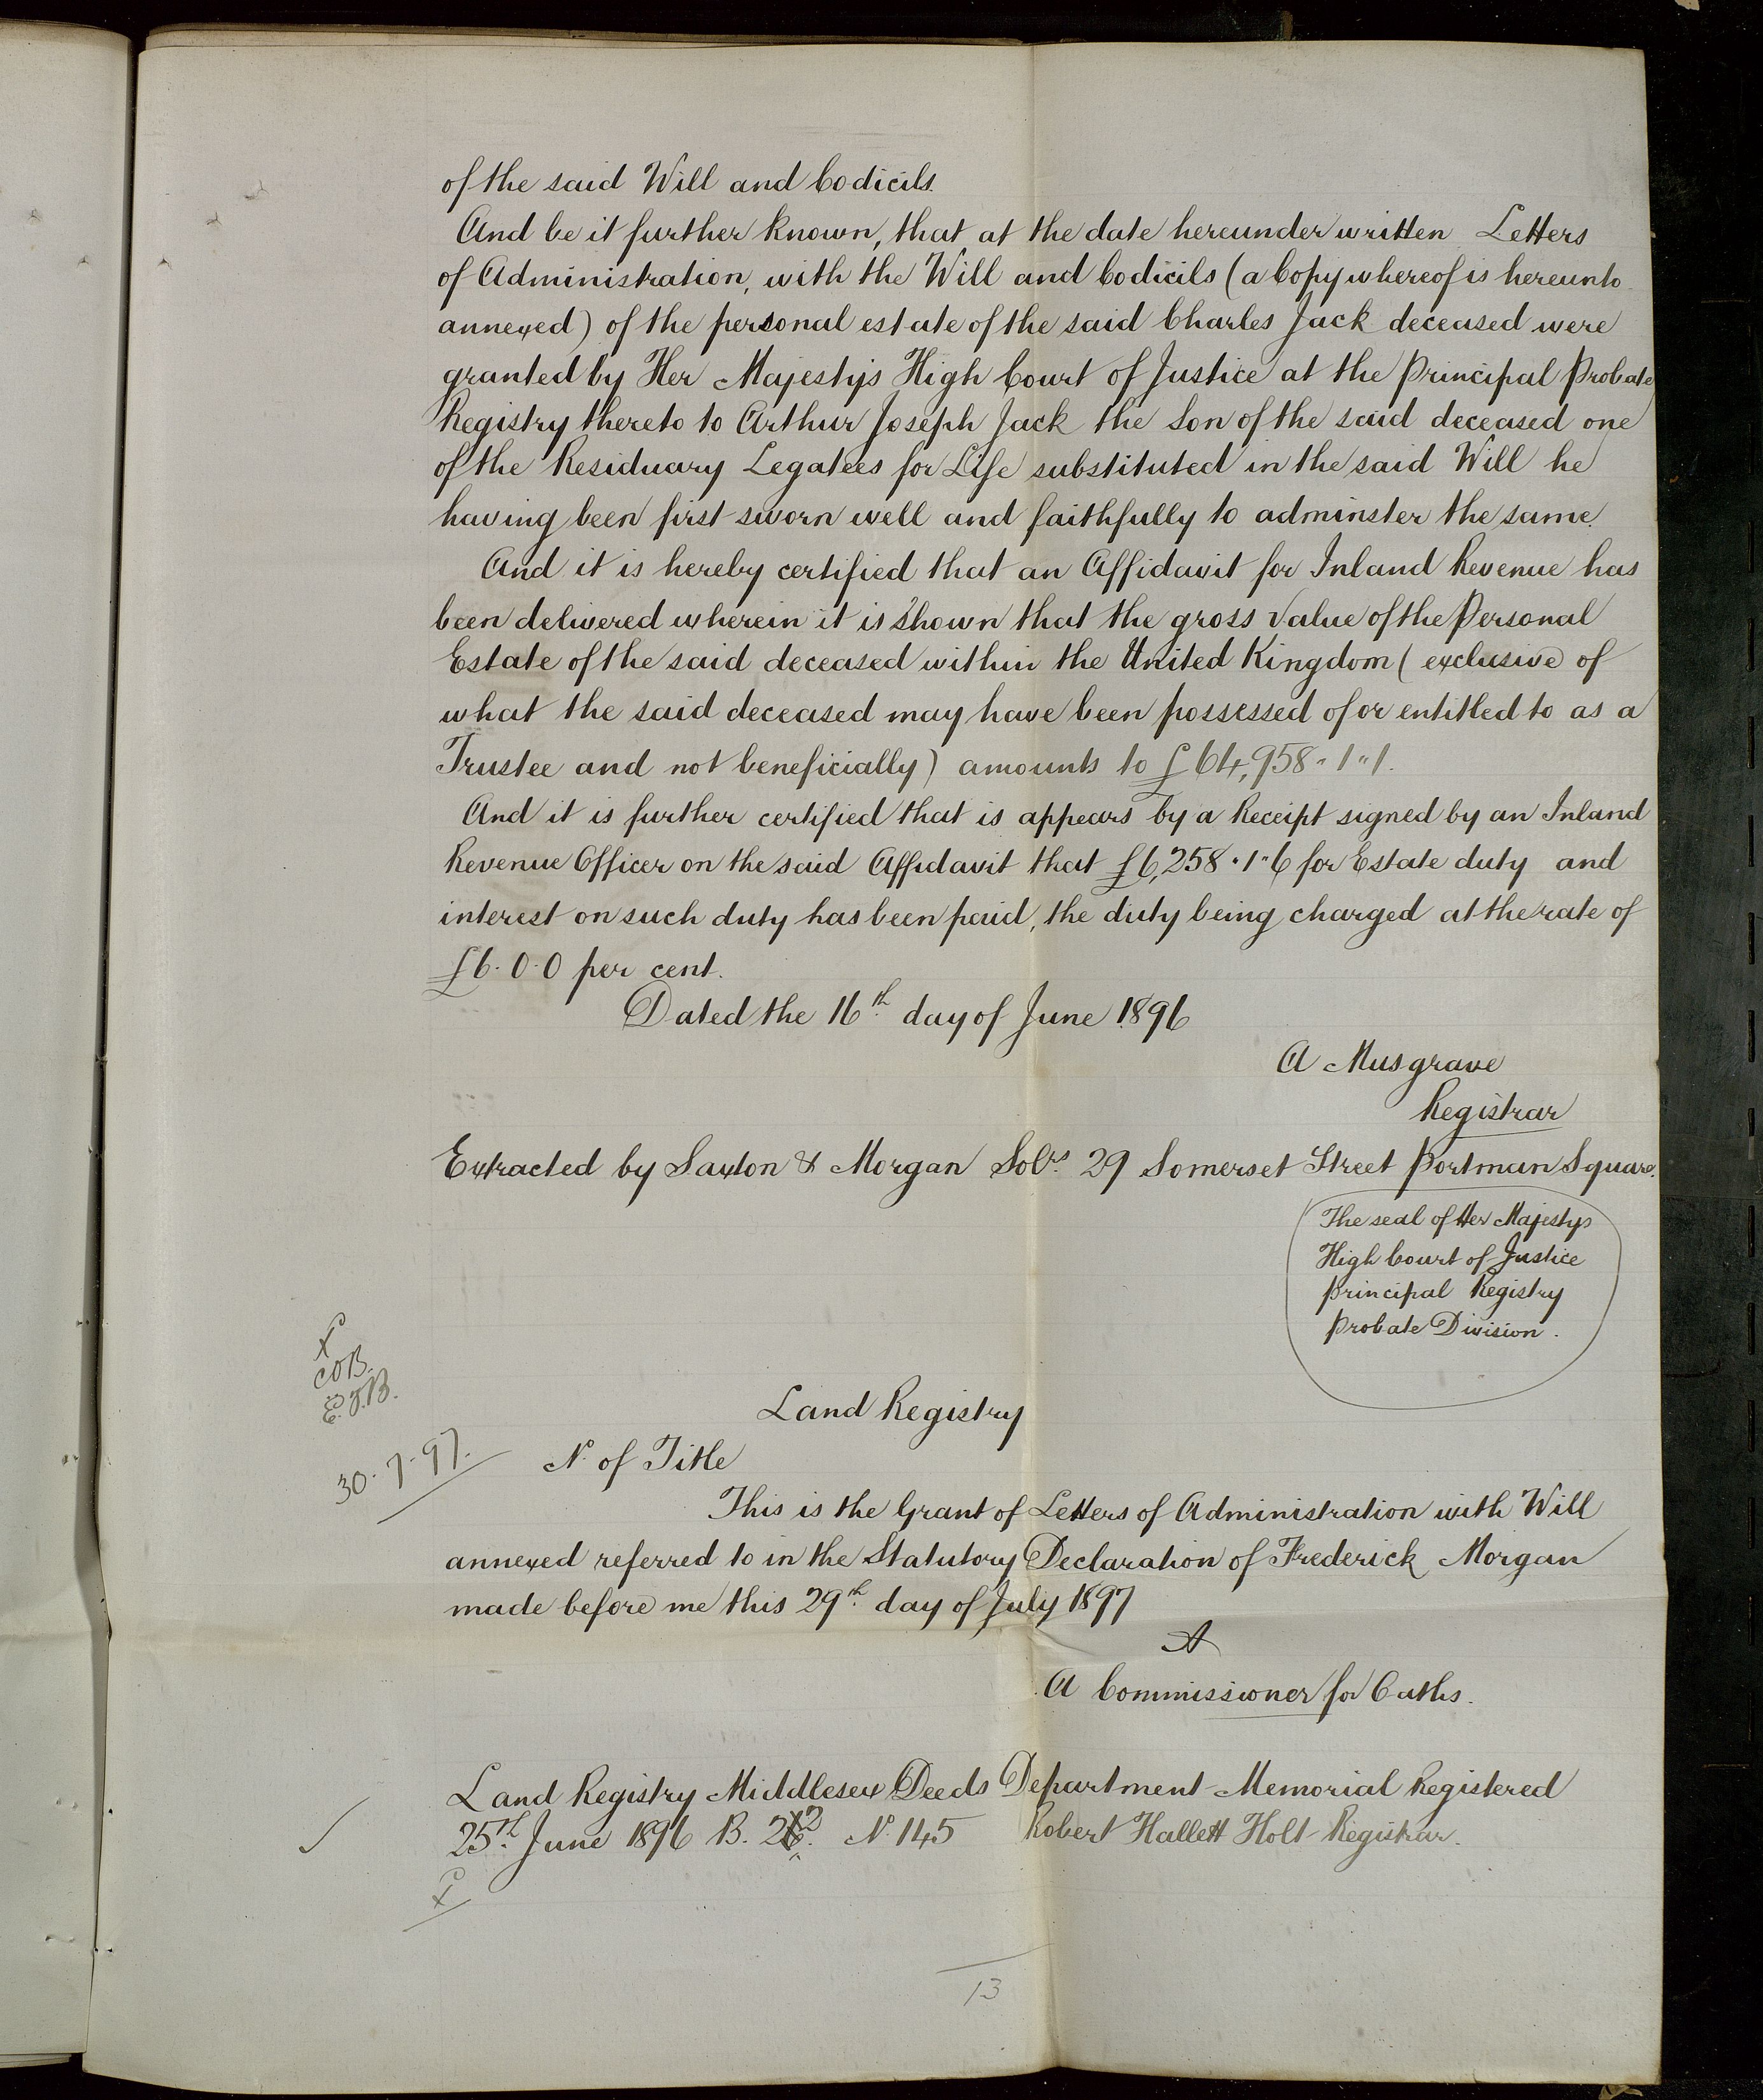 of the said Will and Codicils.
And be it further known, that at the date hereunder written Letters
of Administration, with the Will and Codicils (a Copy whereof is hereunto
annexed) of the personal estate of the said Charles Jack deceased were
granted by Her Majestys High Court of Justice at the Principal Probate
Registry thereto to Arthur Joseph Jack the Son of the said deceased one
of the Residuary Legatees for Life substituted in the said Will he
having been first sworn well and faithfully to adminster the same.
And it is hereby certified that an Affidavit for Inland Revenue has
been delivered wherein it is Shown that the gross Value of the Personal
Estate of the said deceased within the United Kingdom (exclusive of
what the said deceased may have been possessed of or entitled to as a
Trustee and not beneficially) amounts to £64,958"1"1.
And it is further certified that is appears by a Receipt signed by an Inland
Revenue Officer on the said Affidavit that £6,258"1"6 for Estate duty and
interest on such duty has been paid, the duty being charged at the rate of
£6.0.0 per cent.
Dated the 16th day of June 1896
A Musgrave
Registrar
Extracted by Saxton & Morgan Solrs 29 Somerset Street Portman Square.
The seal of Her Majestys
High Court of Justice
Principal Registry
Probate Division.
COB.
E.J.B.
30.7.97.
Land Registry
No of Title
This is the Grant of Letters of Administration with Will
annexed referred to in the Statutory Declaration of Frederick Morgan
made before me this 29th day of July 1897
A Commissioner for Oaths.
Land Registry Middlesex Deeds Department Memorial Registered
25th June 1896 B. 22. No 145 Robert Hallett Holt Registrar.
13